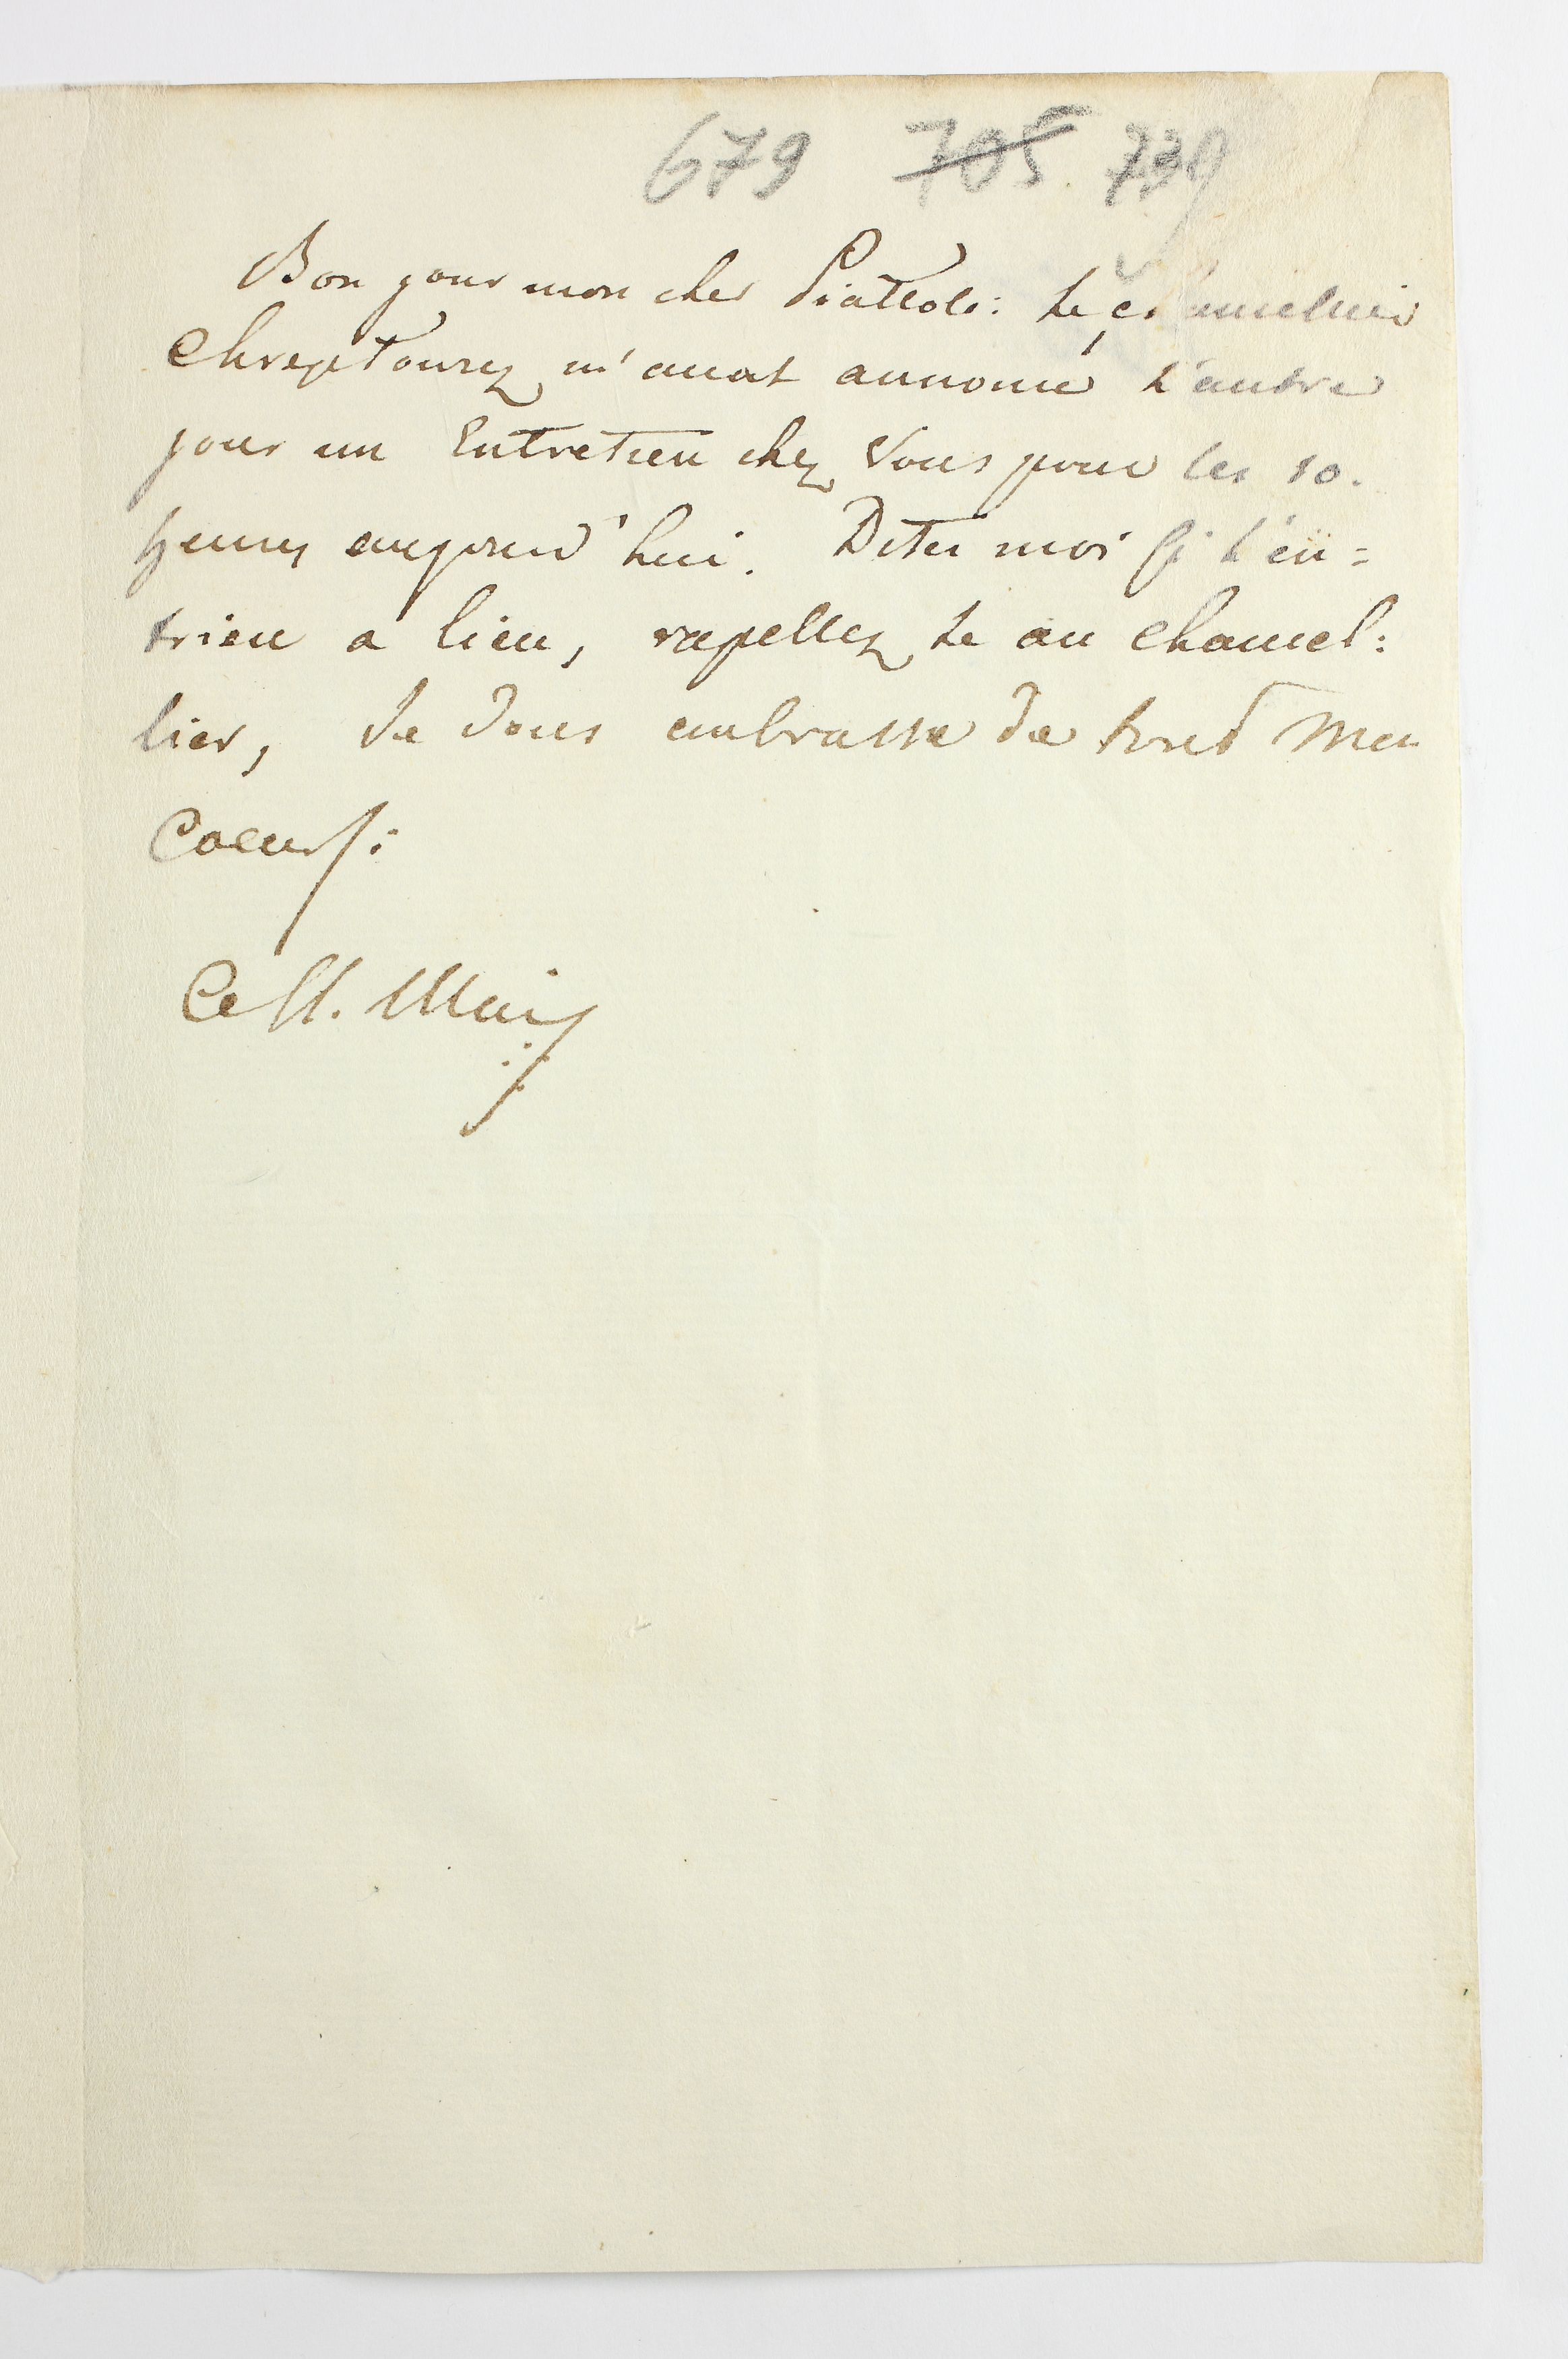 679 705 739
Bon jour mon cher Piattoli: le chancelier
Chreptowiz m'avoit annoncé l'autre
jour un Entretien chez Vous pour les 10.
heures aujourd'hui. Dites moi si l'en=
trien a lieu, rapellez le au chancel:
lier, Je Vous embrasse de tout mon
Coeur:
Ce 11. Mai